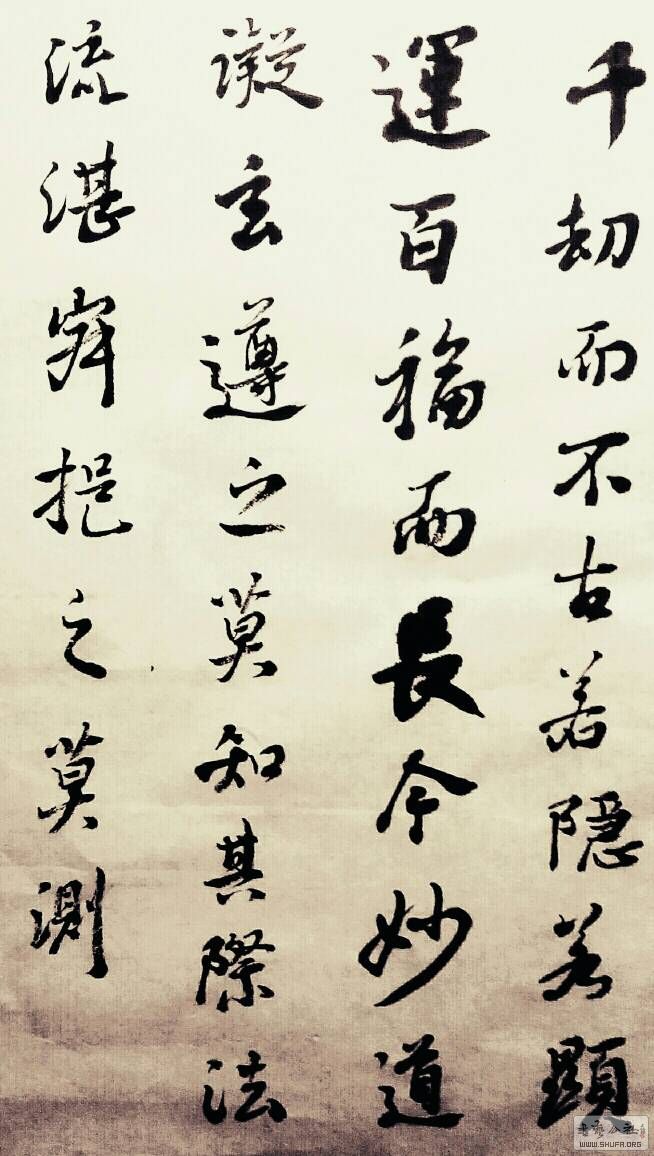 千劫而不古若隱若顯
運百福而長今妙道
凝玄遵之莫知其際法
流湛寂挹之莫測
書藝公社
WWW.SHUFA.ORG